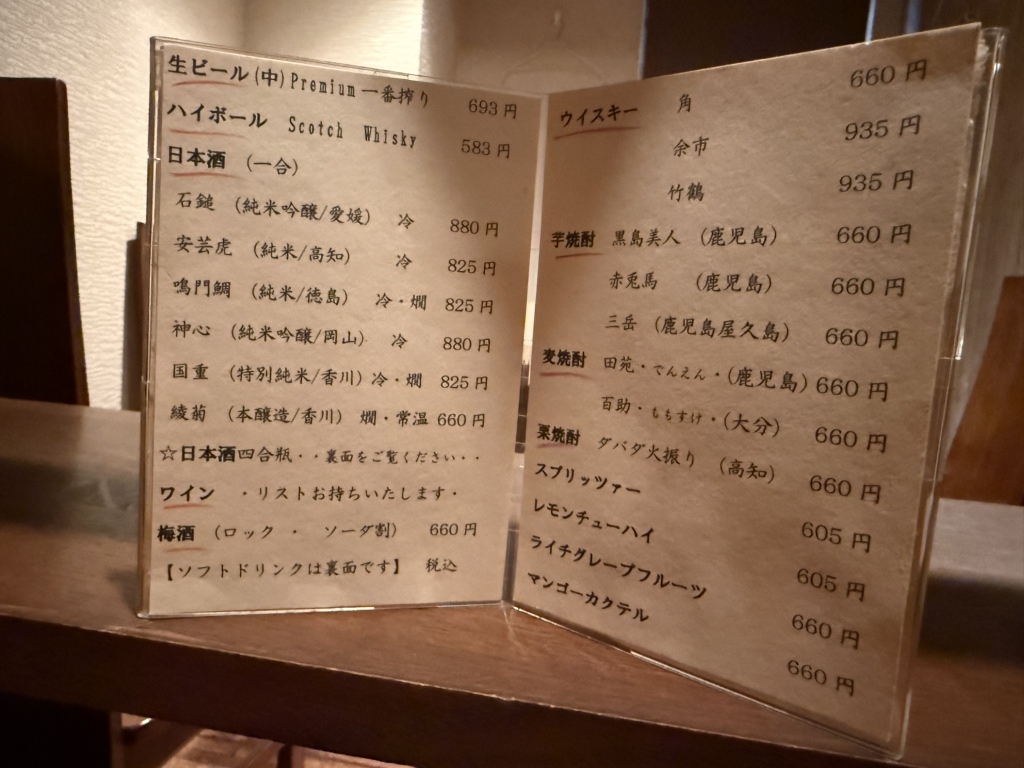 生ビール(中)Premium一番搾り 693円
ハイボール Scotch Whisky 583円
日本酒 (一合)
石鎚 (純米吟醸/愛媛) 冷 880円
安芸虎 (純米/高知) 冷 825円
鳴門鯛 (純米/徳島) 冷・燗 825円
神心 (純米吟醸/岡山) 冷 880円
国重 (特別純米/香川)冷・燗 825円
綾菊 (本醸造/香川) 燗・常温 660円
☆日本酒四合瓶・・裏面をご覧ください・・
ワイン ・リストお持ちいたします・
梅酒 (ロック ・ ソーダ割) 660円
【ソフトドリンクは裏面です】 税込
ウイスキー 角 660円
余市 935円
竹鶴 935円
芋焼酎 黒島美人 (鹿児島) 660円
赤兎馬 (鹿児島) 660円
三岳 (鹿児島屋久島) 660円
麦焼酎 田苑・でんえん・(鹿児島) 660円
百助・ももすけ・(大分) 660円
栗焼酎 ダバダ火振り (高知) 660円
スプリッツァー 605円
レモンチューハイ 605円
ライチグレープフルーツ 660円
マンゴーカクテル 660円